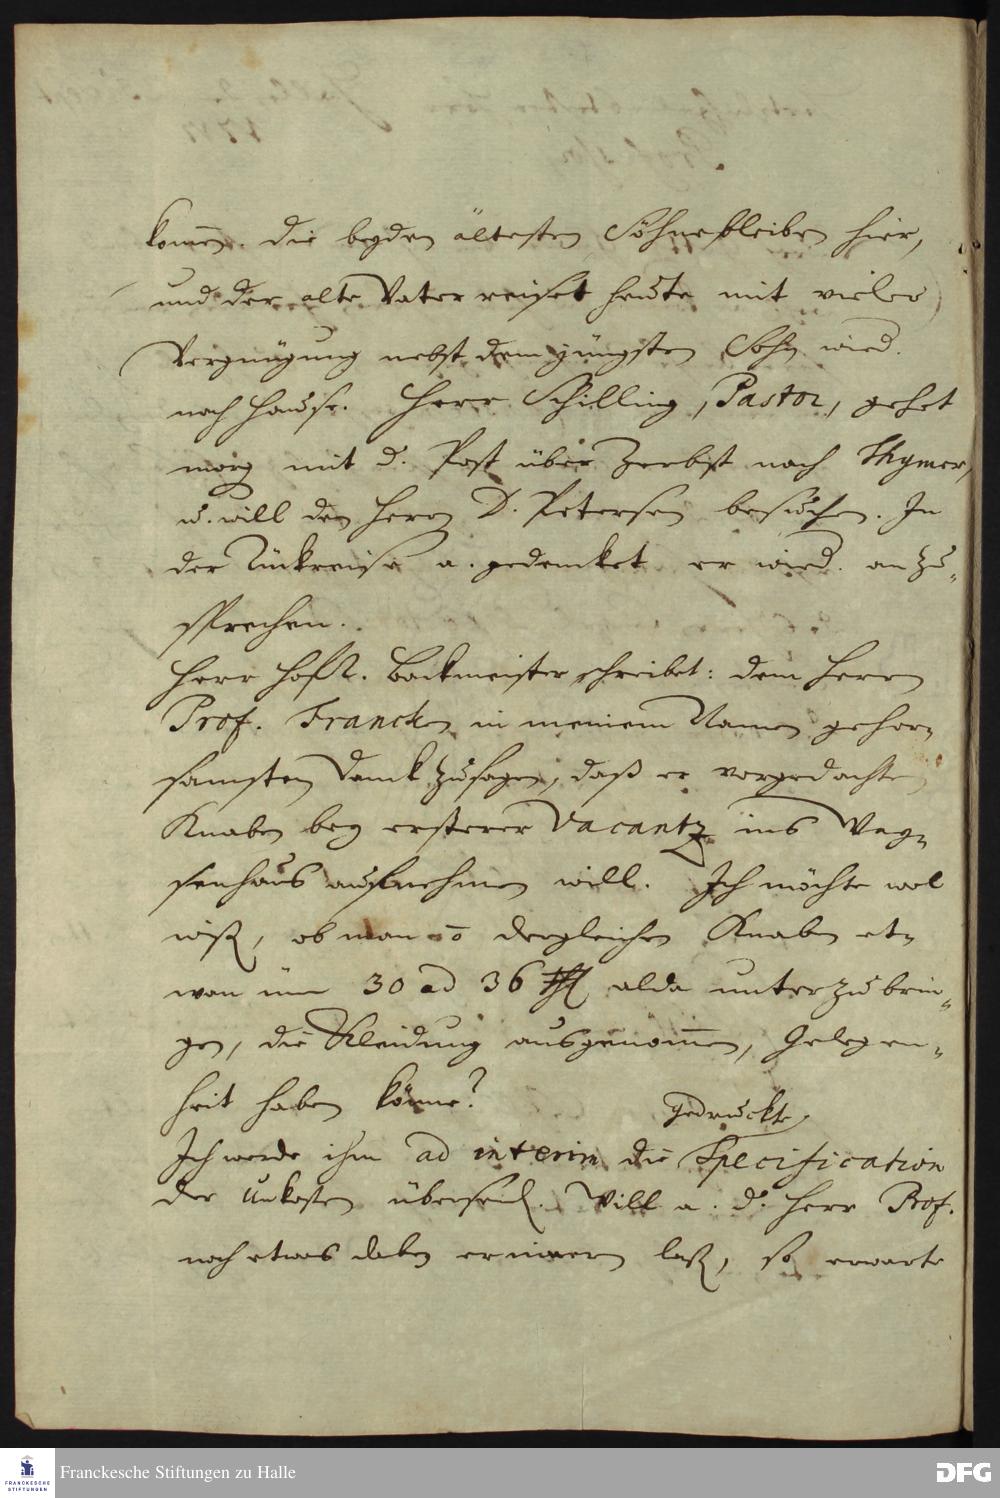 kom̄en. die beyden ältesten Söhne bleiben hier,
und der alte Vater reiset heute mit vieler
Vergnügung nebst dem jüngsten Sohn wied.
nach Hause. Herr Schilling, Pastor, gehet
morg mit d. Post über Zerbst nach Thymer,
u. will den Herrn D. Petersen besuchen. In
der Rückreise a. gedencket er wied. an zu-
sprechen.
Herr HofR. Backmeister schreibet: dem Herrn
Prof. Francken in meinem Namen gehor-
samsten Danck zusagen, daß er vorgedachten
Knaben bey ersterer Vacantz ins Way-
senhaus aufnehmen will. Ich möchte wol
wiß, ob man o dergleichen Knaben et-
wan üm 30 ad 36 thl alda unterzubrin-
gen, die Kleidung ausgenom̄en, Gelegen-
heit haben könne?
gedruckte
Ich werde ihm ad interim die Specification
der Unkosten übersend. Will a. d. Herr Prof.
noch etwas dabey erinnern laß, so erwarte
Franckesche Stiftungen zu Halle
FRANCKESCHE
STIFTUNGEN
DFG